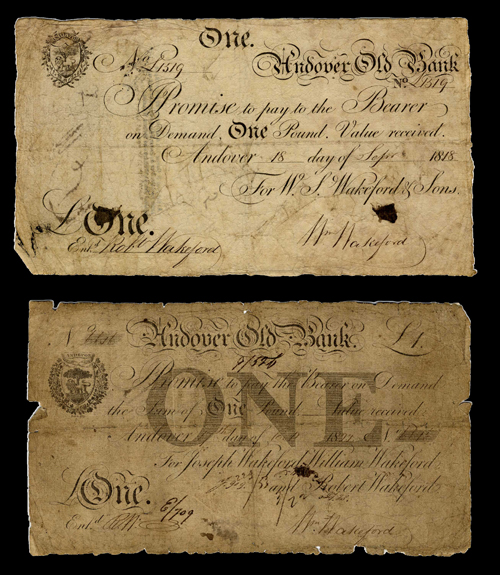 One.
No L1519 Andover Old Bank
No. L1519
I Promise to pay to the Bearer
on Demand, One Pound. Value received.
Andover 18 day of Sepr 1818
For W. S. Wakeford & Sons.
£ One.
Entd. Robt Wakeford Wm Wakeford
Andover Old Bank. £1.
I Promise to pay the Bearer on Demand
the Sum of One Pound Value received
ONE
Andover day of 182
For Joseph Wakeford, William Wakeford
and Robert Wakeford.
£ One.
6/709
Entd. Wm Wakeford